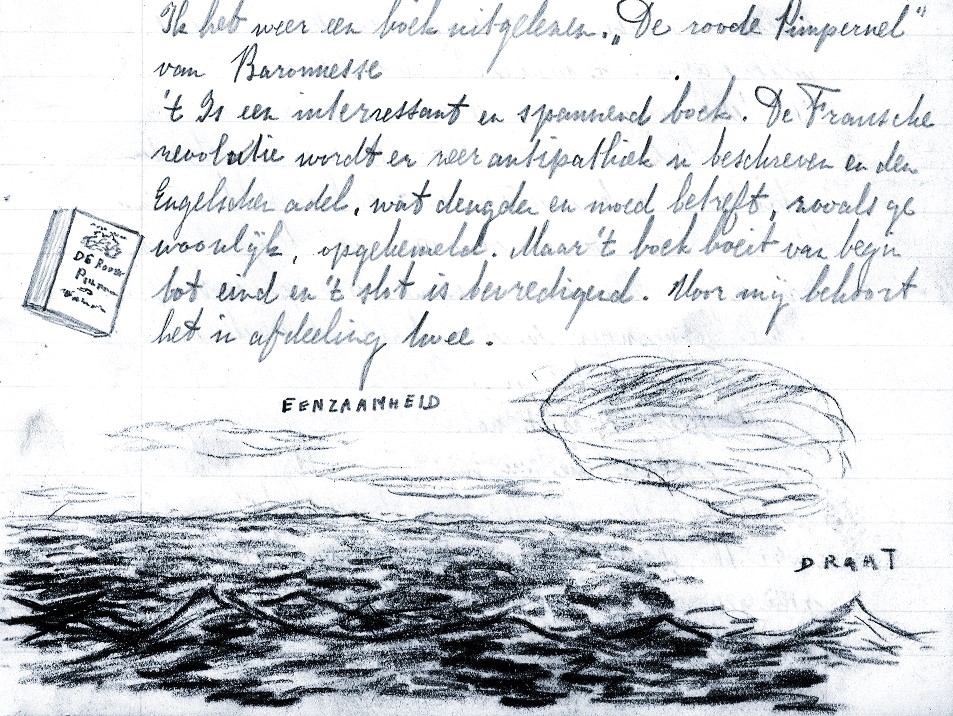 Ik heb weer een boek uitgelezen. „De roode Pimpernel"
van Baronnesse
't Is een interressant en spannend boek. De Fransche
revolutie wordt er zeer antipathiek in beschreven en den
Engelschen adel, wat deugden en moed betreft, zooals ge
woonlijk, opgehemeld. Maar 't boek boeit van begin
tot eind en 't slot is bevredigend. Voor mij behoort
het in afdeeling twee.
DE ROODE
EENZAAMHEID